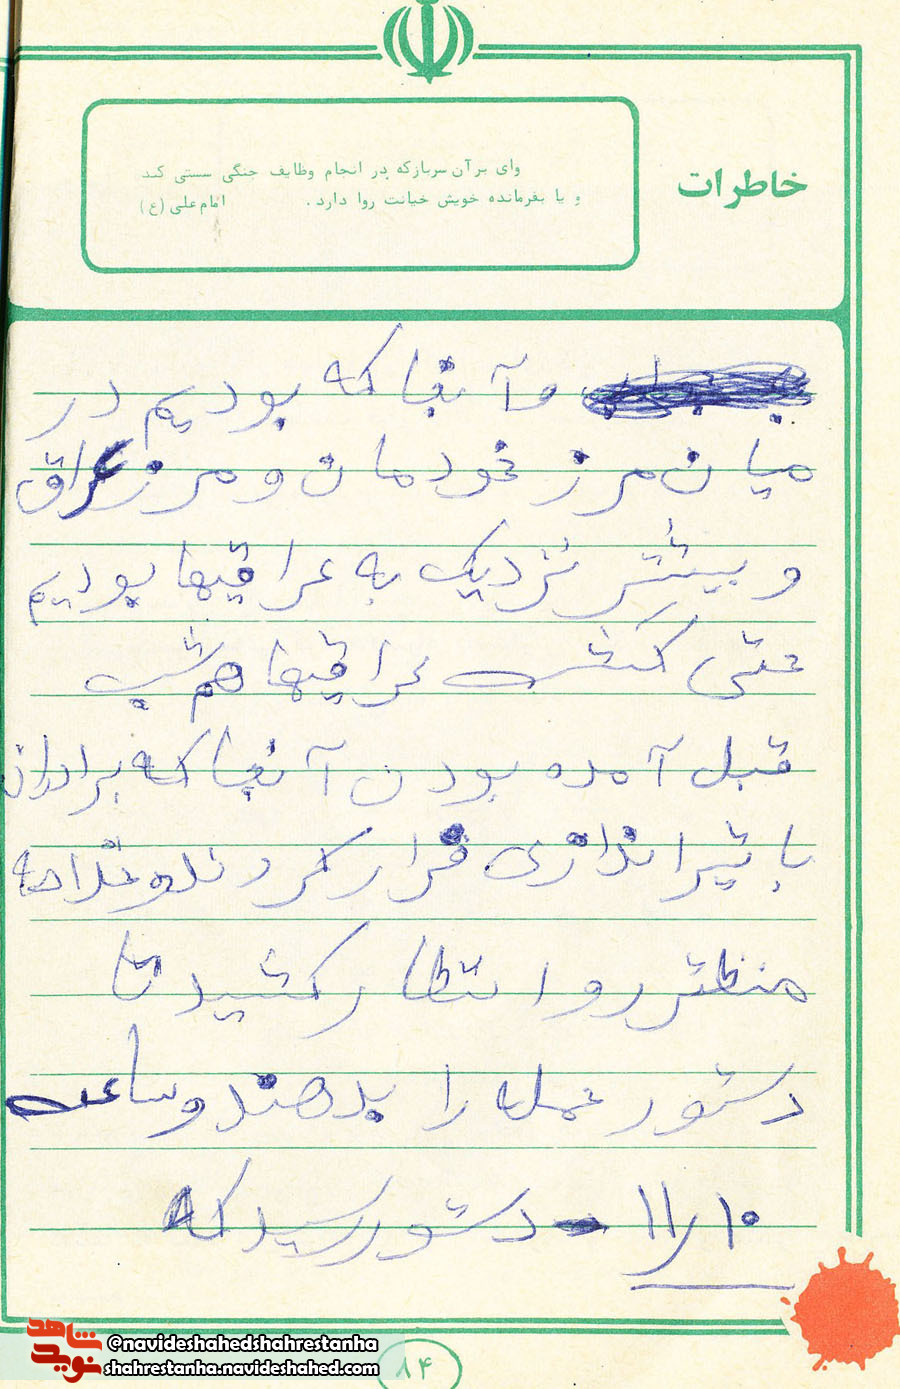 خاطرات
وای بر آن سرباز که در انجام وظایف جنگی سستی کند
و یا بفرمانده خویش خیانت روا دارد. امام علی (ع)
و آنجا که بودیم در
میان مرز خودمان و مرز عراق
و بیشتر نزدیک به عراقیها بودیم
حتی گشتی عراقیها هم شب
قبل آمده بودن آنجا که برادران
با تیراندازی فرار کردند و خلاصه
منتظر و انتظار کشید تا
دستور حمله را بدهند و ساعت
۱۱٫۱۰ دستور رسید که
۸۴
شاهد
نوید
@navideshahedshahrestanha
shahrestanha.navideshahed.com